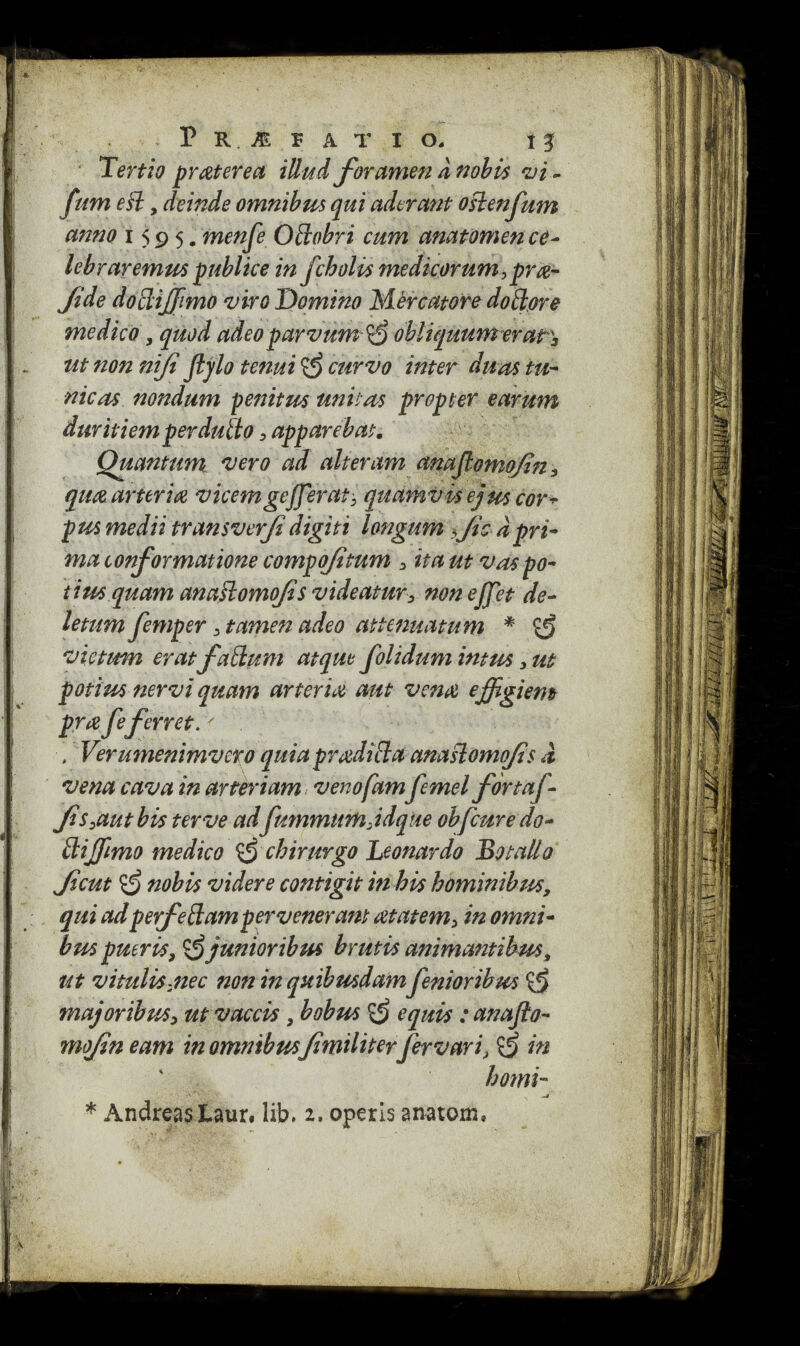 PRÆFATIO. 13
Tertio præterea illud foramen à nobis vi-
ſum eſt, deinde omnibus qui aderant oſtenſum
anno 1595. menſe Octobri cum anatomen ce-
lebraremus publice in ſcholis medicorum, præ-
ſide doctiſſimo viro Domino Mèrcatore doctore
medico, quod adeo parvum & obliquum erat,
ut non niſi ſtylo tenui & curvo inter duas tu-
nicas nondum penitus unitas propter earum
duritiem perducto, apparebat.
Quantum vero ad alteram anaſtomoſin,
quæ arteriæ vicem geſſerat, quamvis ejus cor-
pus medii transverſi digiti longum, ſic à pri-
ma conformatione compoſitum, ita ut vas po-
tius quam anaſtomoſis videatur, non eſſet de-
letum ſemper, tamen adeo attenuatum * &
victum erat factum atque ſolidum intus, ut
potius nervi quam arteriæ aut venæ effigiem
præ ſe ferret.
Verumenimvero quia prædicta anaſtomoſis à
vena cava in arteriam venoſam ſemel fortaſ-
ſis, aut bis terve ad ſummum, idque obſcure do-
ctiſſimo medico & chirurgo Leonardo Botallo
ſicut & nobis videre contigit in his hominibus,
qui ad perfectam pervenerant ætatem, in omni-
bus pueris, & junioribus brutis animantibus,
ut vitulis, nec non in quibusdam ſenioribus &
majoribus, ut vaccis, bobus & equis: anaſto-
moſin eam in omnibus ſimiliter ſervari, & in
homi-
* Andreas Laur. lib. 2. operis anatom.